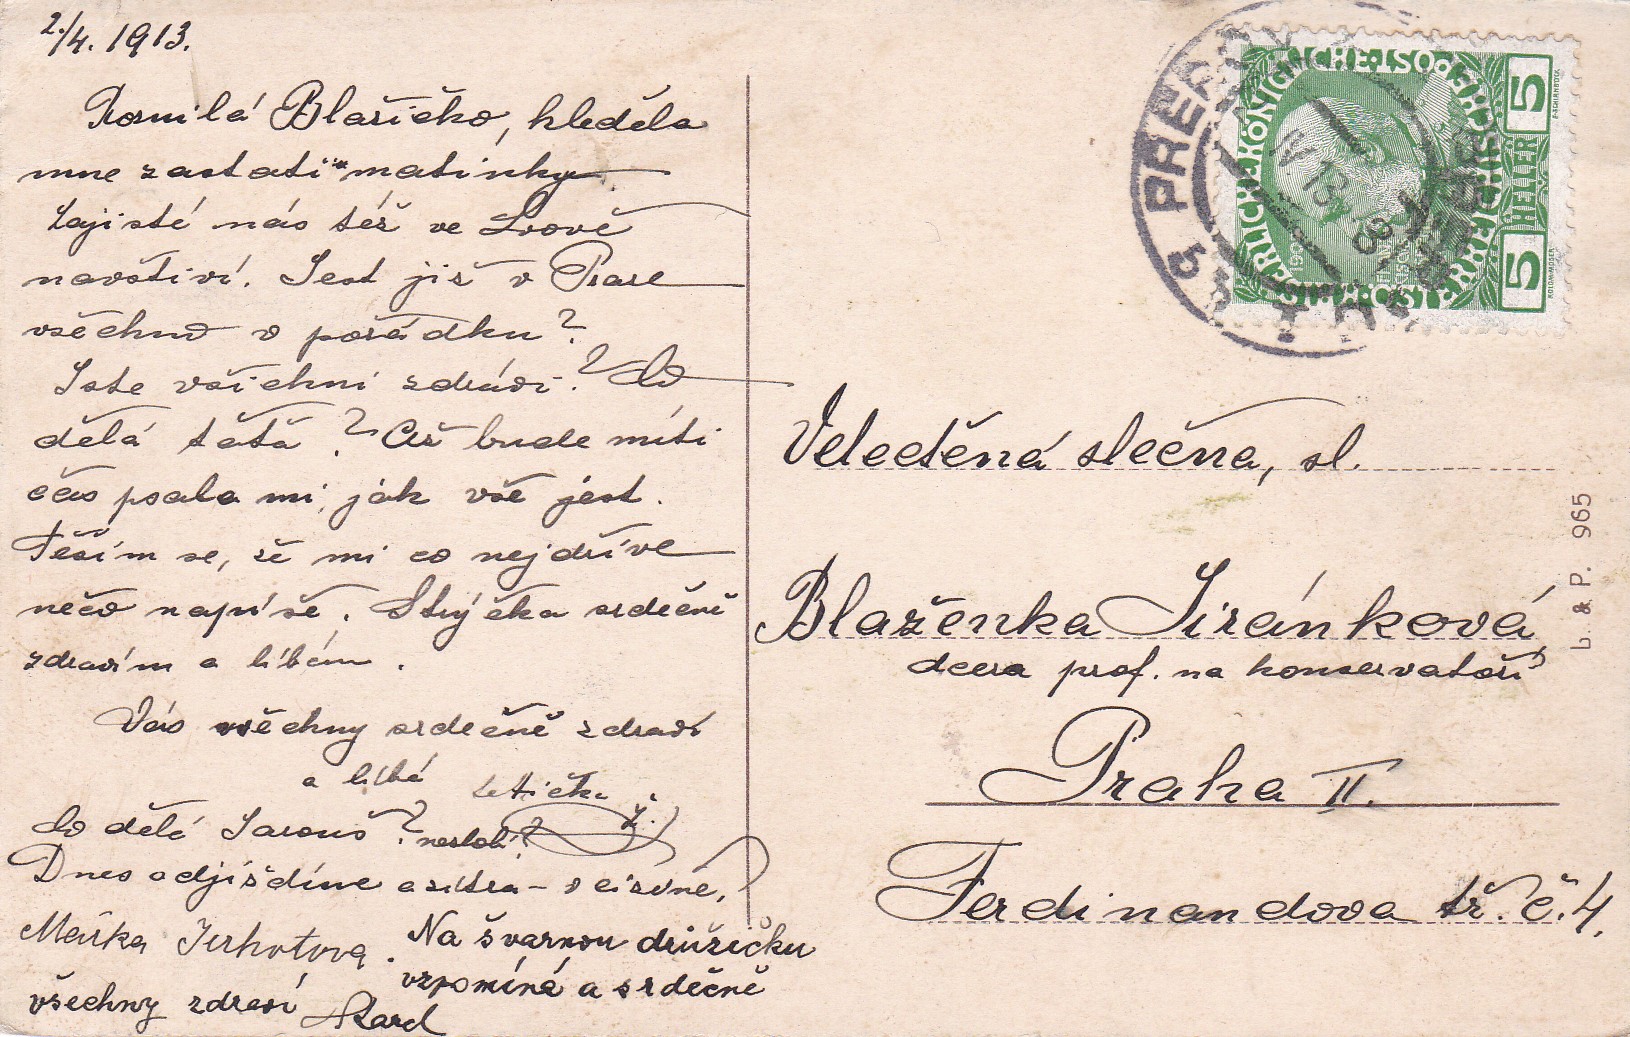 2./4. 1913.
Rosmilá Blažičko, hleděla
mne zastati "matinky
Zajisté nás též ve Lvově
navštiví. Jest již v Praze
všechno v pořádku?
Jste všichni zdrávi? Co
dělá táta? Až bude míti
čas psala mi, jak vše jest.
Těším se, že mi co nejdříve
něco napíše. Strýčka srdečně
zdravím a líbám.
Vás všechny srdečně zdraví
a líbá tetička
Ž.
Co dělá Jarouš? nezlobí?
Dnes odjíždíme a zítra
Mářka Jerhotova.
všechny zdraví
Na švarnou družičku
vzpomíná a srdečně
Karel
PŘEROV
IV 13 8
KAISERLICHE KÖNIGLICHE ÖSTERREICHISCHE POST
5 HELLER 5
1908
KOLO MOSER
F. SCHIRNBÖCK
Velectěná slečna, sl.
Blaženka Jiránková,
dcera prof. na konservatoři
Praha II.
Ferdinandova tř. č. 4.
L. & P. 965